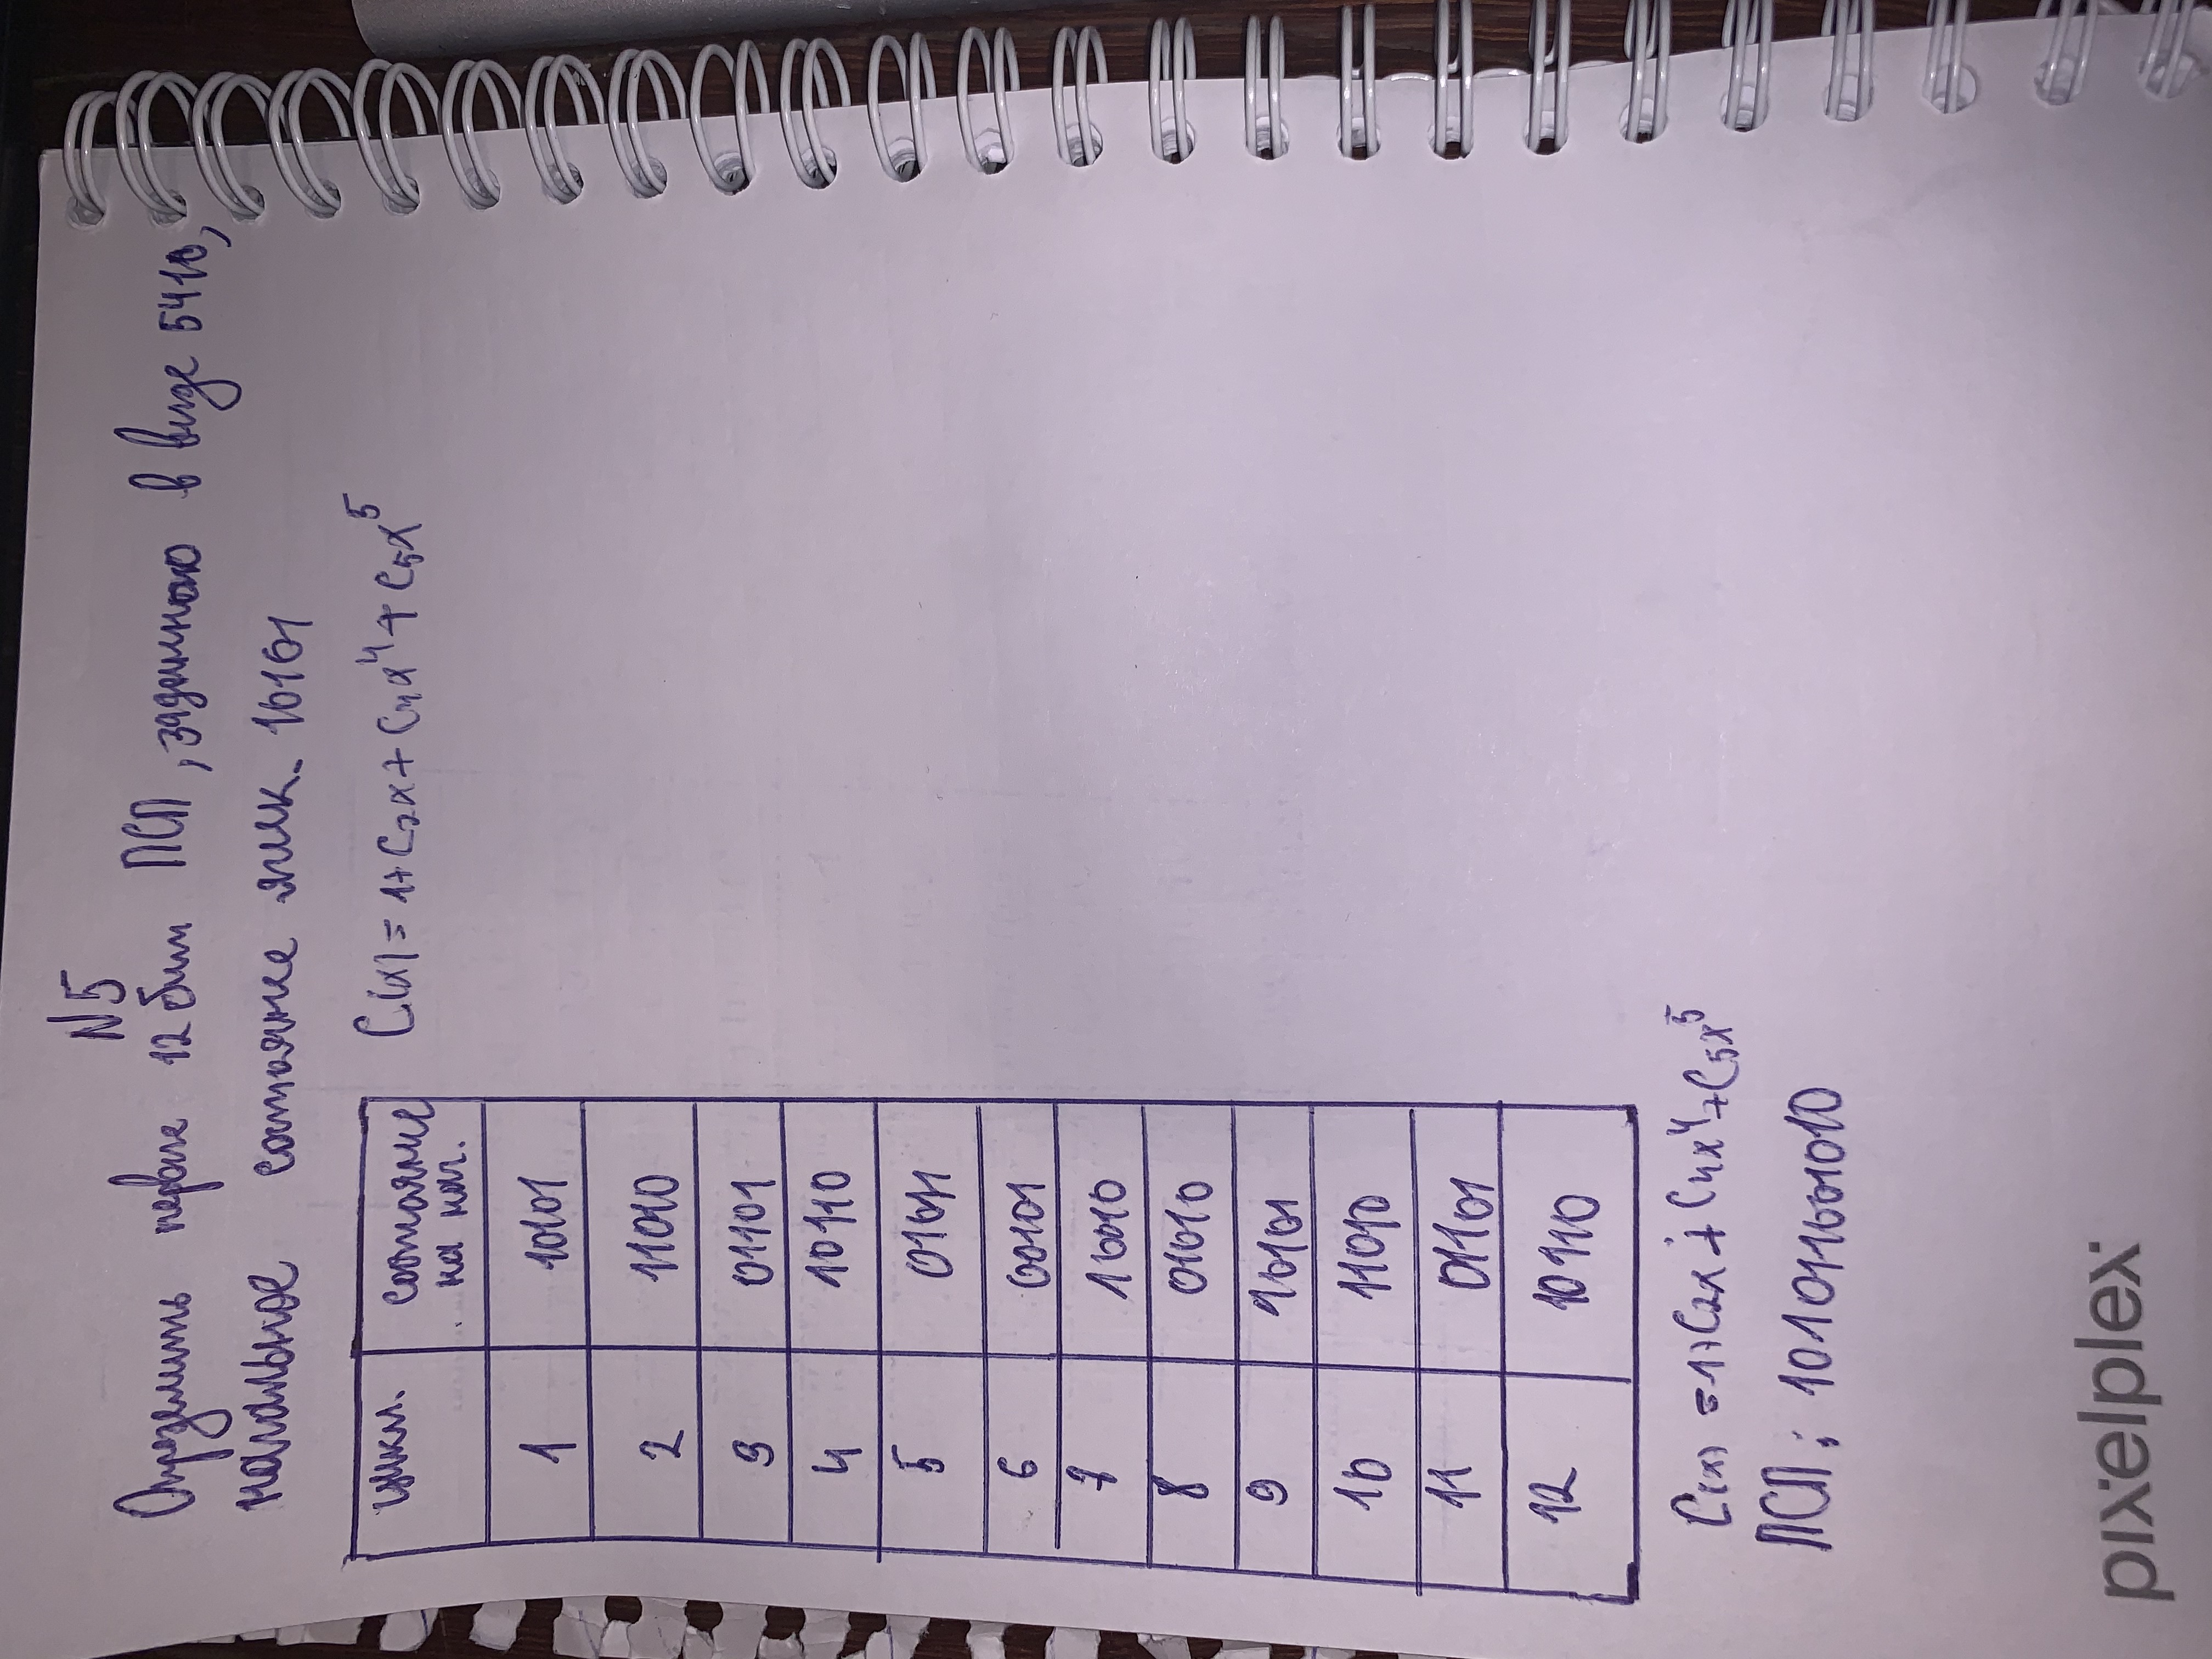 N5
Определить первые 12 бит ПСП, заданною в виде 5410,
начальное состояние ячеек. 10101
цикл. состояние на нач.
C(x) = 1+C₂x+C₄x⁴+C₅x⁵
1 10101
2 11010
3 01101
4 10110
5 01011
6 00101
7 10010
8 01010
9 10101
10 11010
11 01101
12 10110
C(x) = 1+C₂x+C₄x⁴+C₅x⁵
ПСП: 101011001010
pixelplex